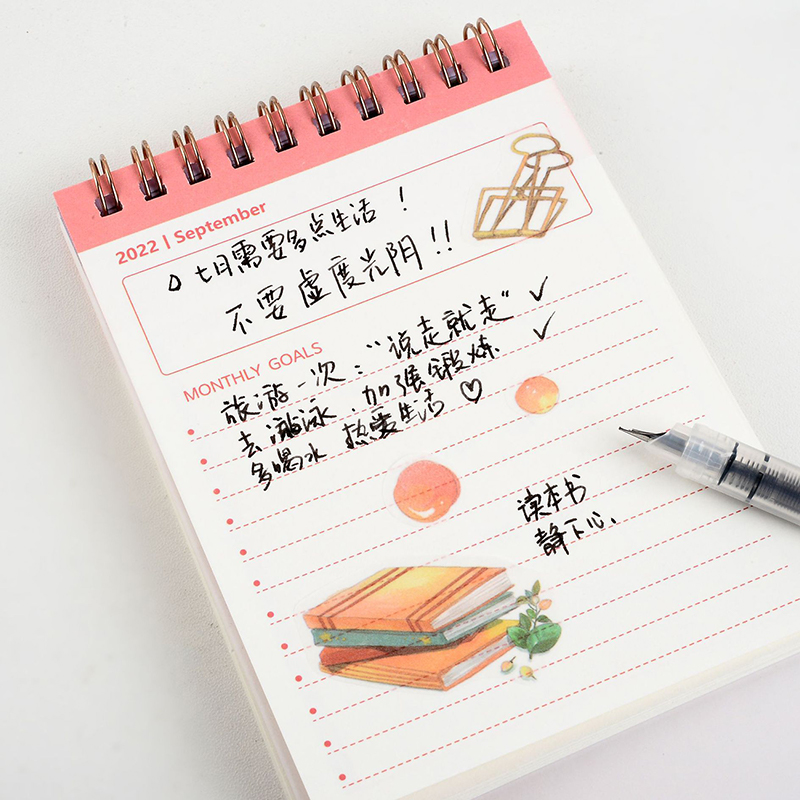 2022 | September
七月需要多点生活！
不要虚度光阴!!
MONTHLY GOALS
旅游一次：“说走就走” ✓
去游泳，加强锻炼 ✓
多喝水 热爱生活 ♡
读本书
静下心.